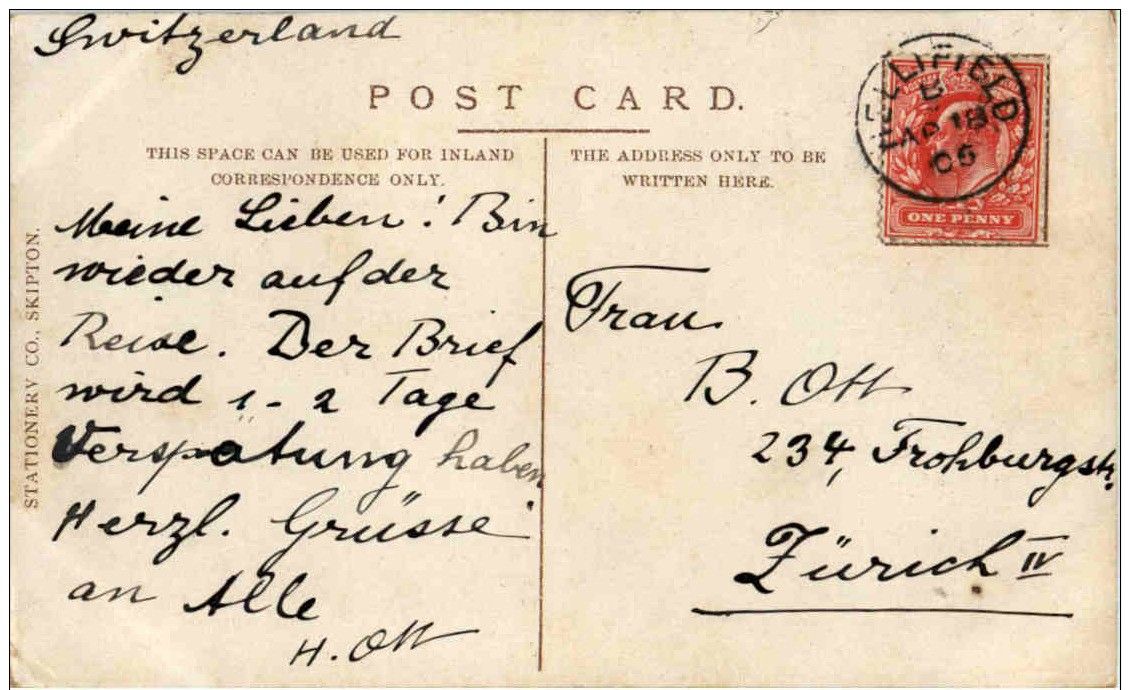 Switzerland
POST CARD.
THIS SPACE CAN BE USED FOR INLAND
CORRESPONDENCE ONLY.
THE ADDRESS ONLY TO BE
WRITTEN HERE.
HELLIFIELD
B
AP 18
05
ONE PENNY
STATIONERY CO., SKIPTON.
Meine Lieben! Bin
wieder auf der
Reise. Der Brief
wird 1-2 Tage
Verspätung haben
Herzl. Grüsse
an Alle
H. Ott
Frau
B. Ott
234, Frohburgstr.
Zürich IV